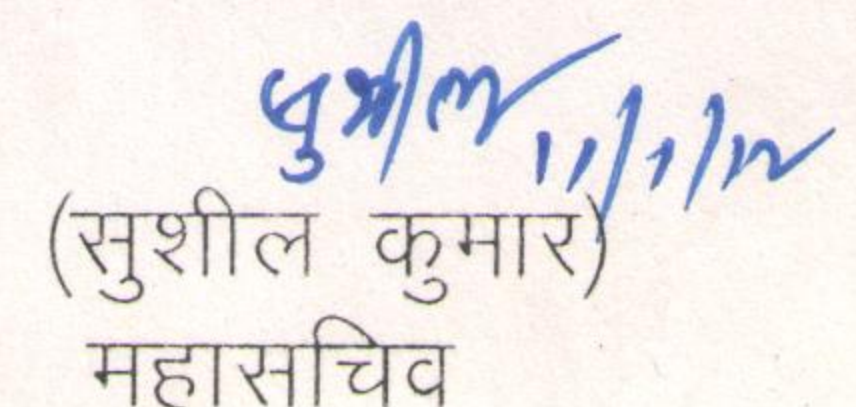 सुशील 11/1/12
(सुशील कुमार)
महासचिव